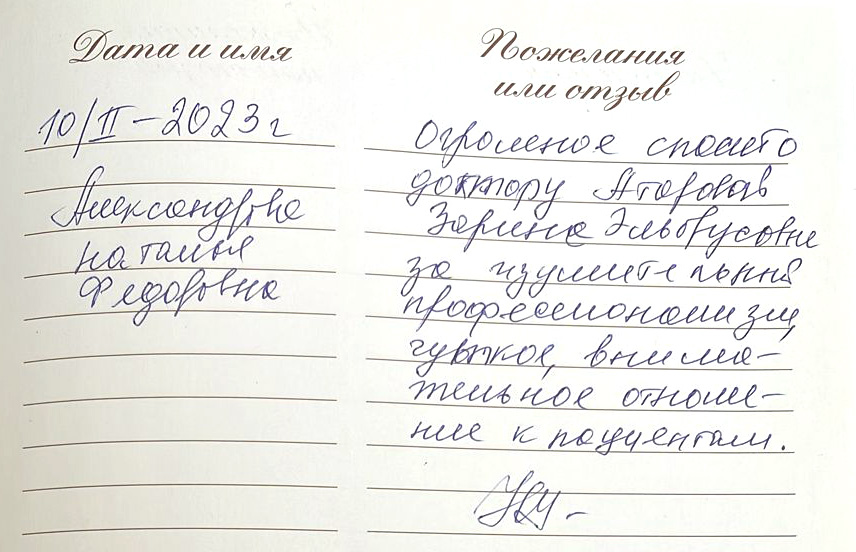 Дата и имя
10/II – 2023 г
Александрова
Наталья
Федоровна
Пожелания
или отзыв
Огромное спасибо
доктору
Зарине Эльбрусовне
за изумительный
профессионализм,
чуткое, внима-
тельное отноше-
ние к пациентам.